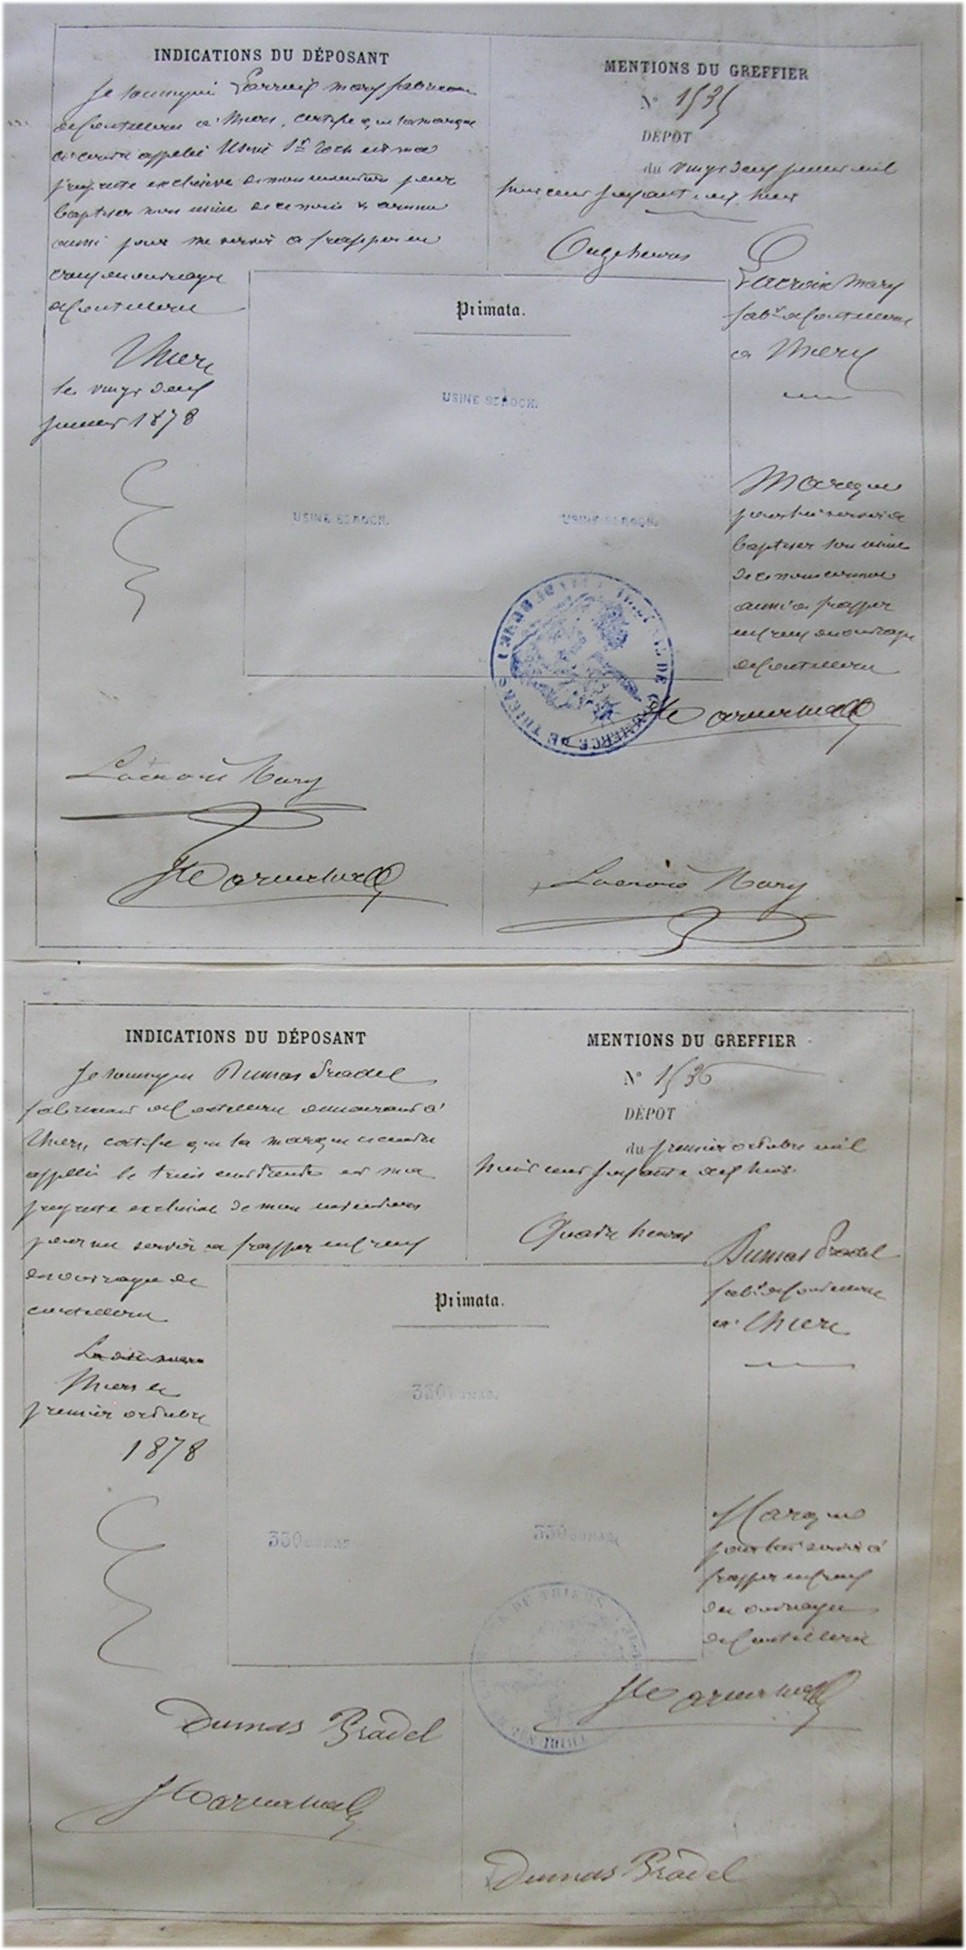 INDICATIONS DU DÉPOSANT
Je soussigné Lacroix Mary fabricant
de coutellerie à Thiers, certifie que la marque
ci contre appelée Usine St Roch est ma
propriété exclusive de mon invention pour
baptiser mon usine de ce nom & comme
aussi pour me servir à frapper en
creux en ouvrage
de coutellerie
Thiers
le vingt deux
1878
Lacroix Mary
MENTIONS DU GREFFIER
N° 1535
DÉPÔT
du vingt deux mil
huit cent soixante dix huit
Onze heures
Lacroix Mary
fabt de coutellerie
à Thiers
Primata.
USINE ST ROCH.
USINE ST ROCH.
USINE ST ROCH.
Marque
pour lui servir à
baptiser son usine
de ce nom comme
aussi à frapper
en creux en ouvrage
de coutellerie
COMMERCE DE THIERS
Lacroix Mary
INDICATIONS DU DÉPOSANT
Je soussigné Dumas Pradel
fabricant de coutellerie demeurant à
Thiers, certifie que la marque ci contre
appelée le trois cent trente est ma
propriété exclusive de mon invention
pour me servir à frapper en creux
en ouvrage de
coutellerie
Thiers le
premier octobre
1878
Dumas Pradel
MENTIONS DU GREFFIER
N° 1536
DÉPÔT
du premier octobre mil
huit cent soixante dix huit
Quatre heures
Dumas Pradel
fabt de coutellerie
à Thiers
Primata.
330 DUMAS.
330 DUMAS
330 DUMAS
Marque
pour lui servir à
frapper en creux
en ouvrage
de coutellerie
DE THIERS
Dumas Pradel